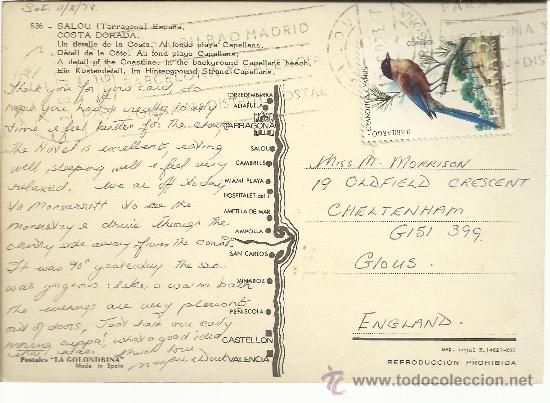 Sat. 11/8/73.
536 - SALOU (Tarragona) España
COSTA DORADA.
Un detalle de la Costa. Al fondo playa Capellans.
Détail de la Côte. Au fond playa Capellans.
A detail of the Coastline. In the background Capellans beach.
Ein Kostendetail. Im Hintergrund Strand Capellans.
BILBAO MADRID
CORREOS
ESPAÑA
CYANOPICA CYANUS
RABILARGO
Thank you for your card, do
hope you had a really lovely
time & feel better for the change
the Hotel is excellent, eating
well, sleeping well & feel very
relaxed. We are off today
to Monserratt to see the
monastery & drive through the
country side away from the coast.
It was 90° yesterday the sea
was gorgeous like a warm bath
the evenings are very pleasant
out of doors, Just have our early
morning cuppa, what a good idea
that was. Much love
TORREDEMBARRA
ALTAFULLA
TARRAGONA
SALOU
CAMBRILS
MIAMI PLAYA
HOSPITALET del I
AMETLLA DE MAR
AMPOLLA
SAN CARLOS
VINAROZ
PEÑISCOLA
CASTELLON
VALENCIA
MISS M. MORRISON
19 OLDFIELD CRESCENT
CHELTENHAM
GLOUS.
ENGLAND.
Postales "LA GOLONDRINA"
Made in Spain
Dep. legal B. 14627-XVI
REPRODUCCIÓN PROHIBIDA
todocoleccion
www.todocoleccion.com